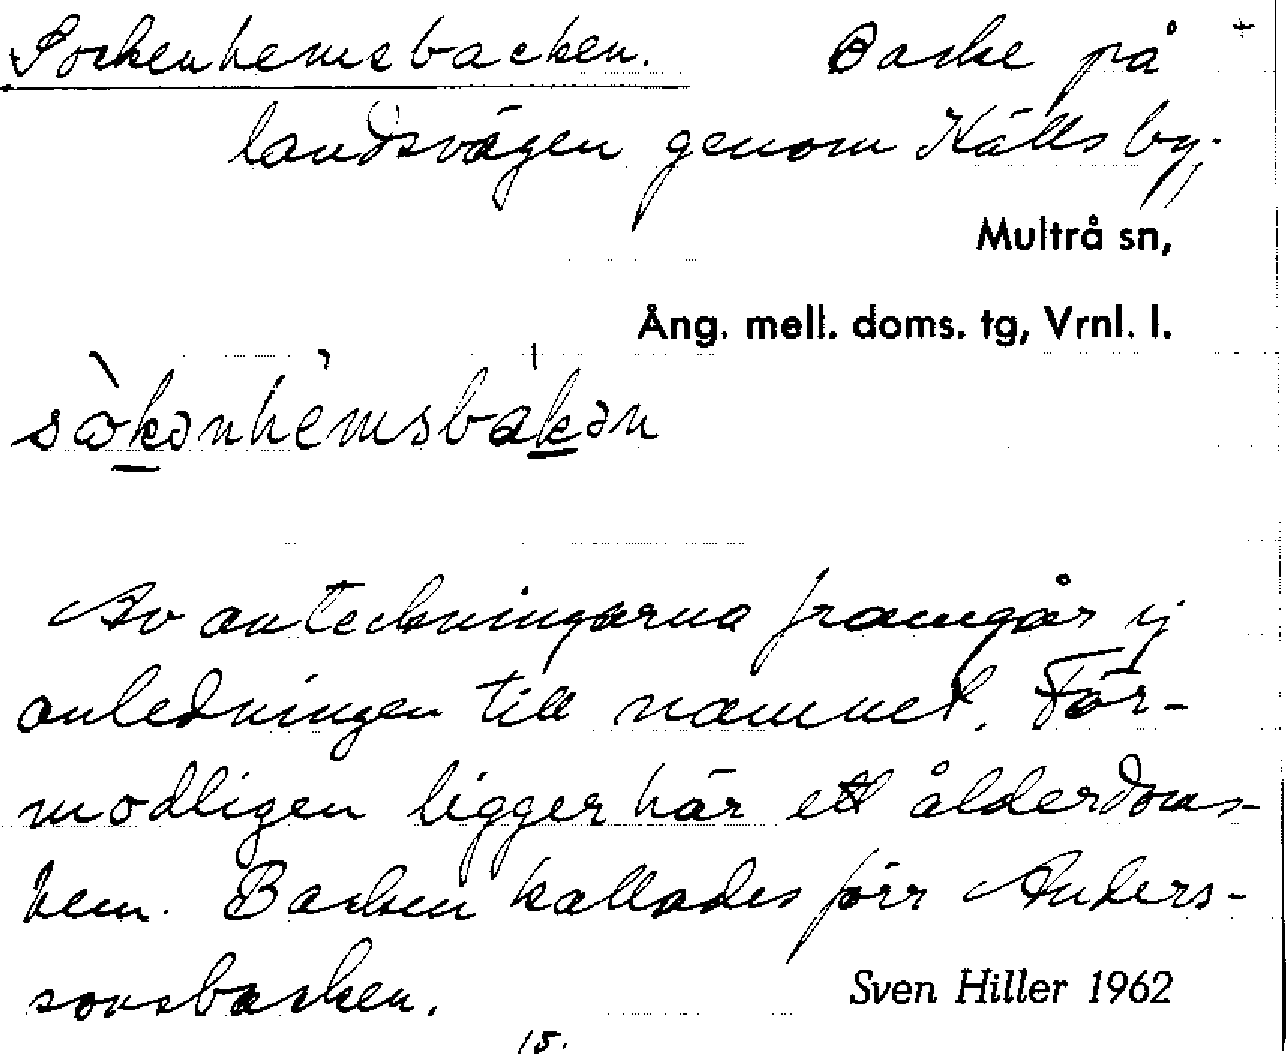 Sockenhemsbacken. Backe på
landsvägen genom Källsby;
Multrå sn,
Ång. mell. doms. tg, Vrnl. l.
sɷ̀kənhèmsbákən
Av anteckningarna framgår ej
anledningen till namnet. För-
modligen ligger här ett ålderdoms-
hem. Backen kallades förr Anders-
sonsbacken.
Sven Hiller 1962
15.